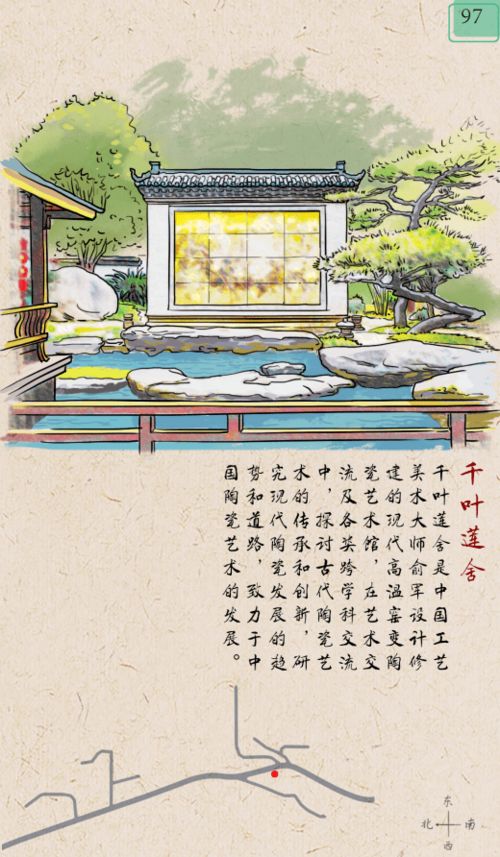 97
千叶莲舍
千叶莲舍是中国工艺
美术大师俞军设计修
建的现代高温窑变陶
瓷艺术馆，在艺术交
流及各类跨学科交流
中，探讨古代陶瓷艺
术的传承和创新，研
究现代陶瓷发展的趋
势和道路，致力于中
国陶瓷艺术的发展。
东
北 南
西